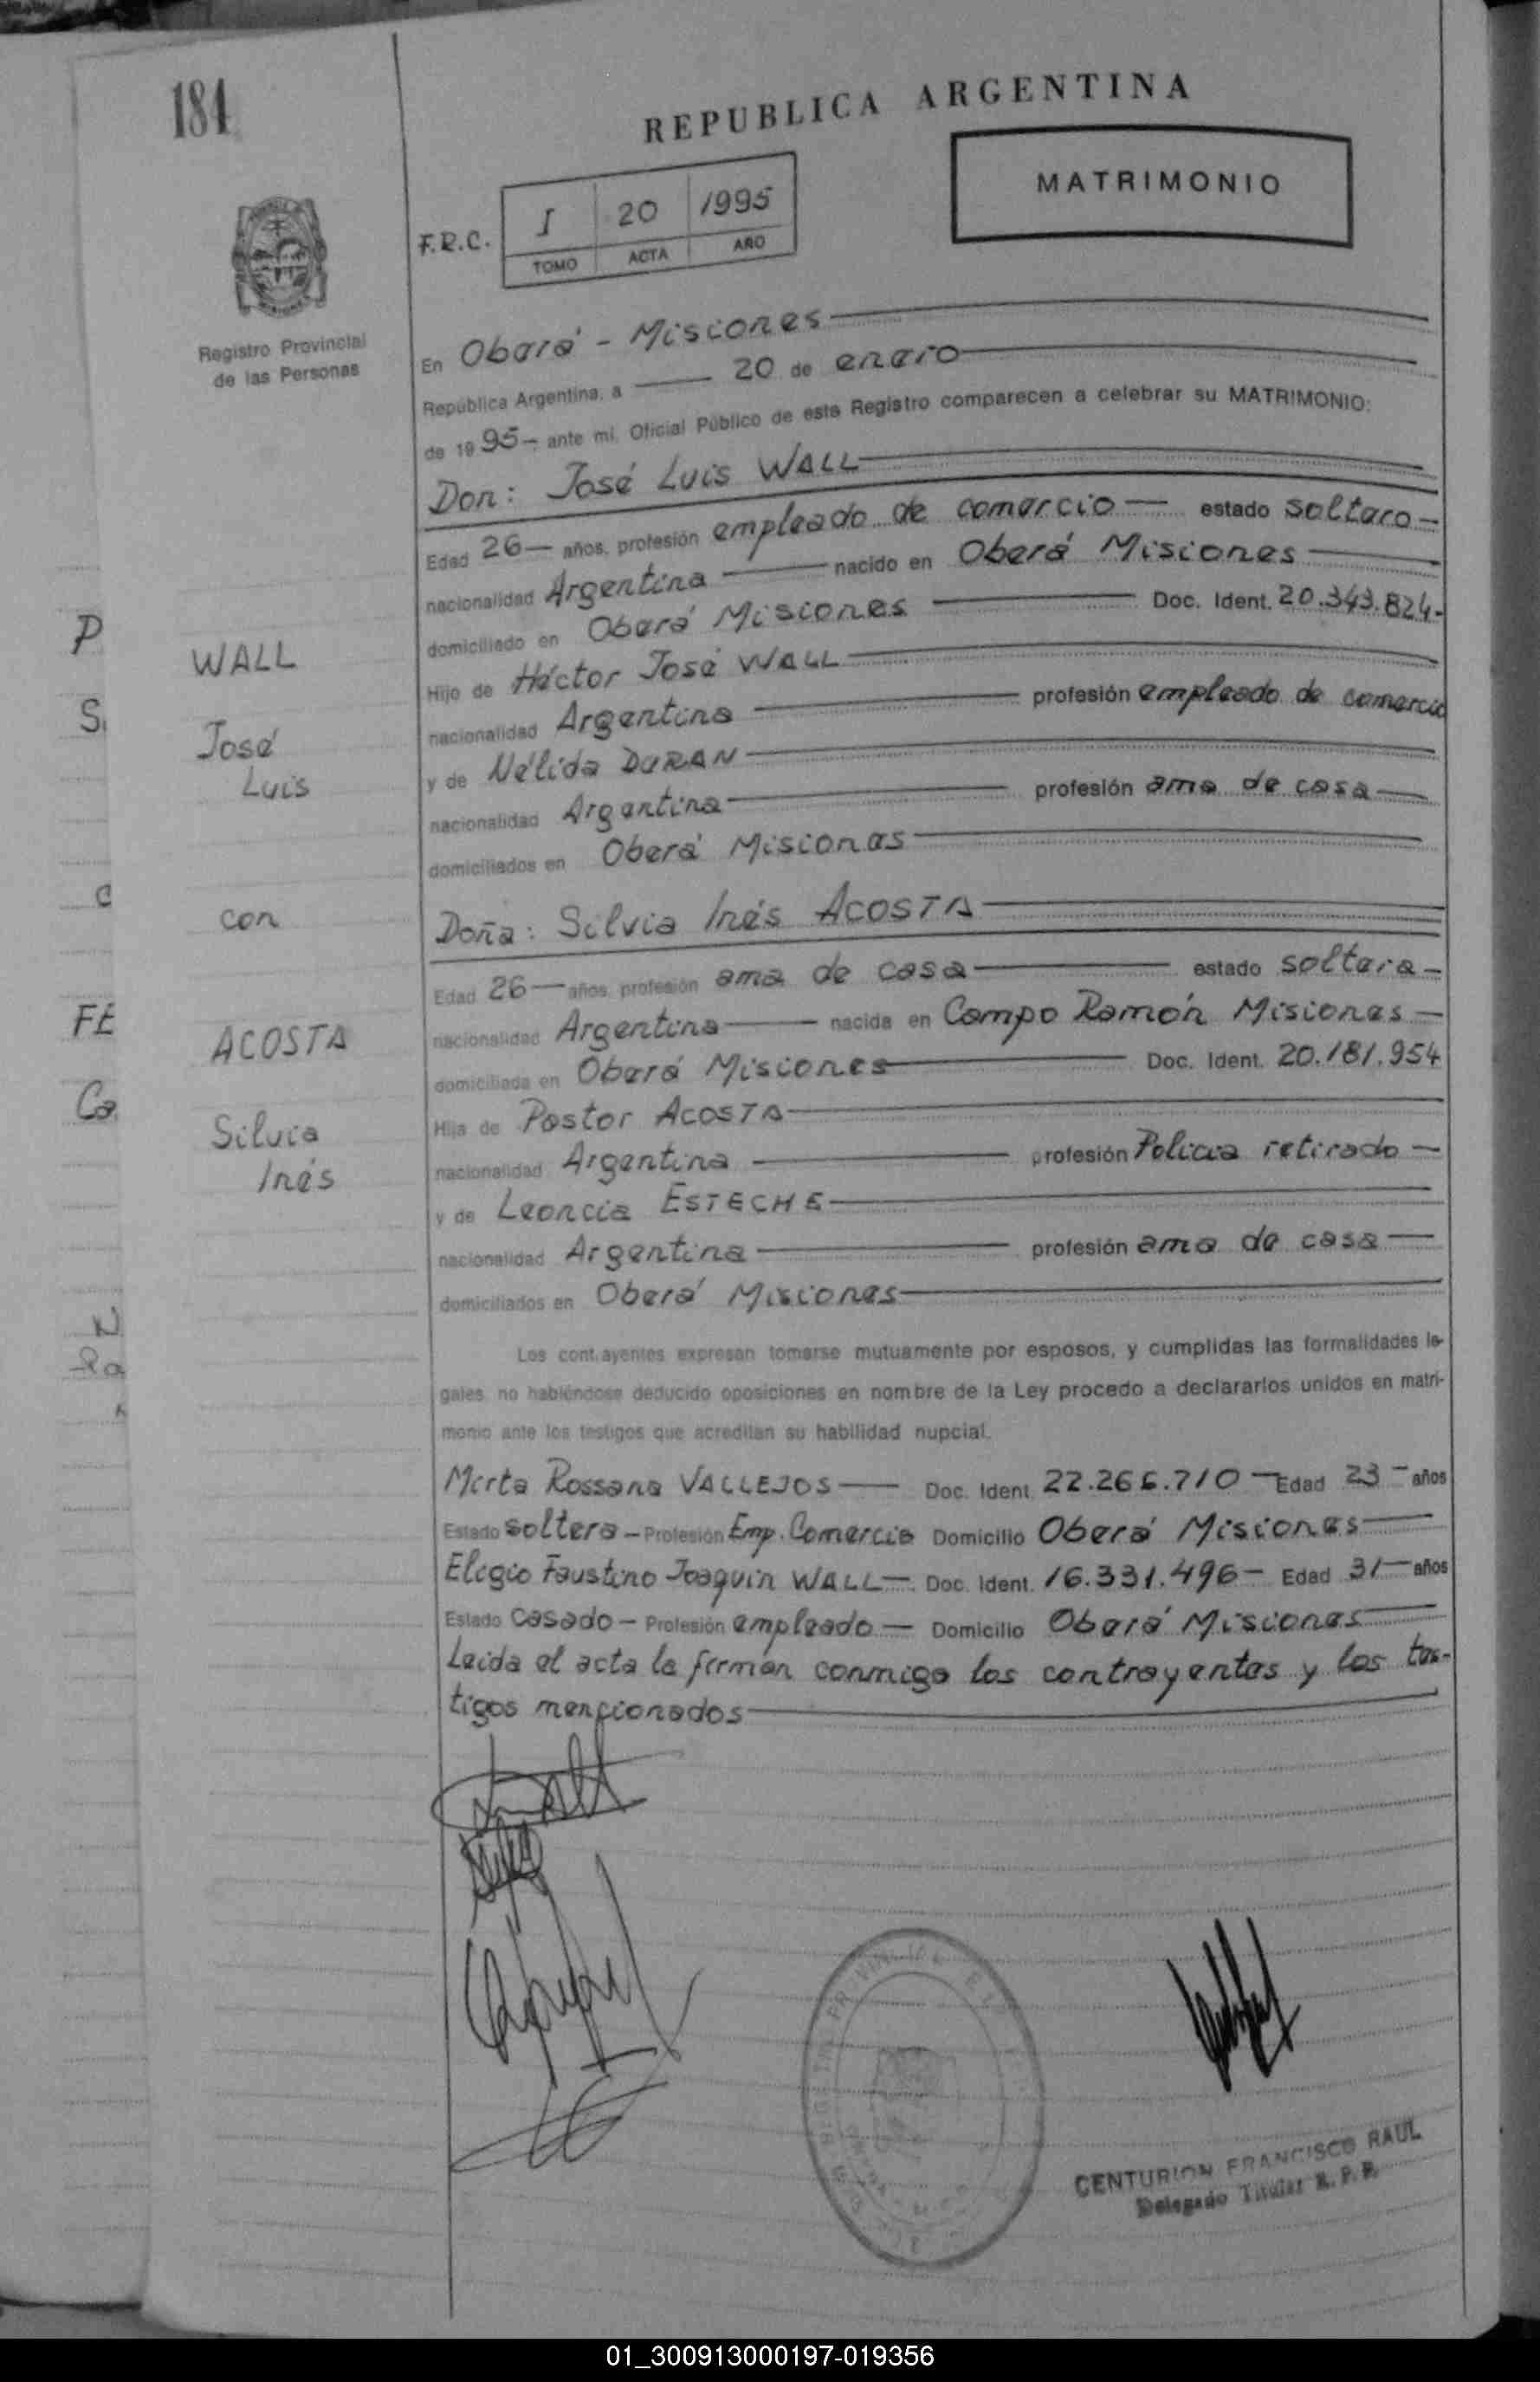 184
REPUBLICA ARGENTINA
MATRIMONIO
F.R.C.
I 20 1995
TOMO ACTA AÑO
Registro Provincial
de las Personas
En Oberá - Misiones
República Argentina, a 20 de enero
de 1995- ante mí, Oficial Público de este Registro comparecen a celebrar su MATRIMONIO:
Don: José Luis WALL
Edad 26 - años, profesión empleado de comercio - estado soltero -
nacionalidad Argentina - nacido en Oberá Misiones
domiciliado en Oberá Misiones Doc. Ident. 20.343.824-
Hijo de Héctor José WALL
nacionalidad Argentina profesión empleado de comercio
y de Nélida DURAN
nacionalidad Argentina profesión ama de casa
domiciliados en Oberá Misiones
Doña: Silvia Inés ACOSTA
Edad 26 - años, profesión ama de casa estado soltera -
nacionalidad Argentina nacida en Campo Ramón Misiones -
domiciliada en Oberá Misiones Doc. Ident. 20.181.954
Hija de Pastor ACOSTA
nacionalidad Argentina profesión Policia retirado -
y de Leoncia ESTECHE
nacionalidad Argentina profesión ama de casa
domiciliados en Oberá Misiones
Los contrayentes expresan tomarse mutuamente por esposos, y cumplidas las formalidades le-
gales, no habiéndose deducido oposiciones en nombre de la Ley procedo a declararlos unidos en matri-
monio ante los testigos que acreditan su habilidad nupcial.
Mirta Rossana VALLEJOS - Doc. Ident. 22.266.710 - Edad 23 - años
Estado soltera - Profesión Emp. Comercio Domicilio Oberá Misiones
Eligio Faustino Joaquin WALL - Doc. Ident. 16.331.496 - Edad 31 - años
Estado casado - Profesión empleado - Domicilio Oberá Misiones
Leida el acta la firman conmigo los contrayentes y los tes-
tigos mencionados
WALL
José
Luis
con
ACOSTA
Silvia
Inés
P
S
C
FE
Ca
N
Ra
CENTURION FRANCISCO RAUL
Delegado Titular R. P. P.
01_300913000197-019356